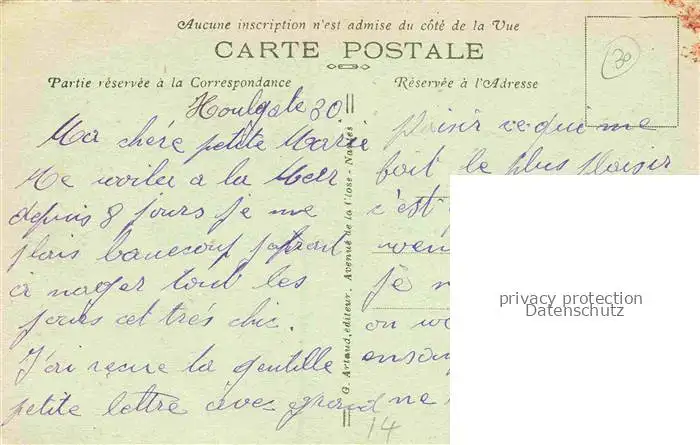 Aucune inscription n'est admise du côté de la Vue
CARTE POSTALE
Partie réservée à la Correspondance
Réservée à l'Adresse
30
Houlgate 30
Ma chére petite Marie
Me voiler a la Mer
depuis 8 jours je me
plais baucoup japrant
a nager tout les
jours cet trés chic.
J'ai reçue ta gentille
petite lettre avec grand
G. Artaud, éditeur, Avenue de la Close - Nantes
plaisir ce qui me
fait le plus plaisir
c'est
je
on
ne
14
privacy protection
Datenschutz